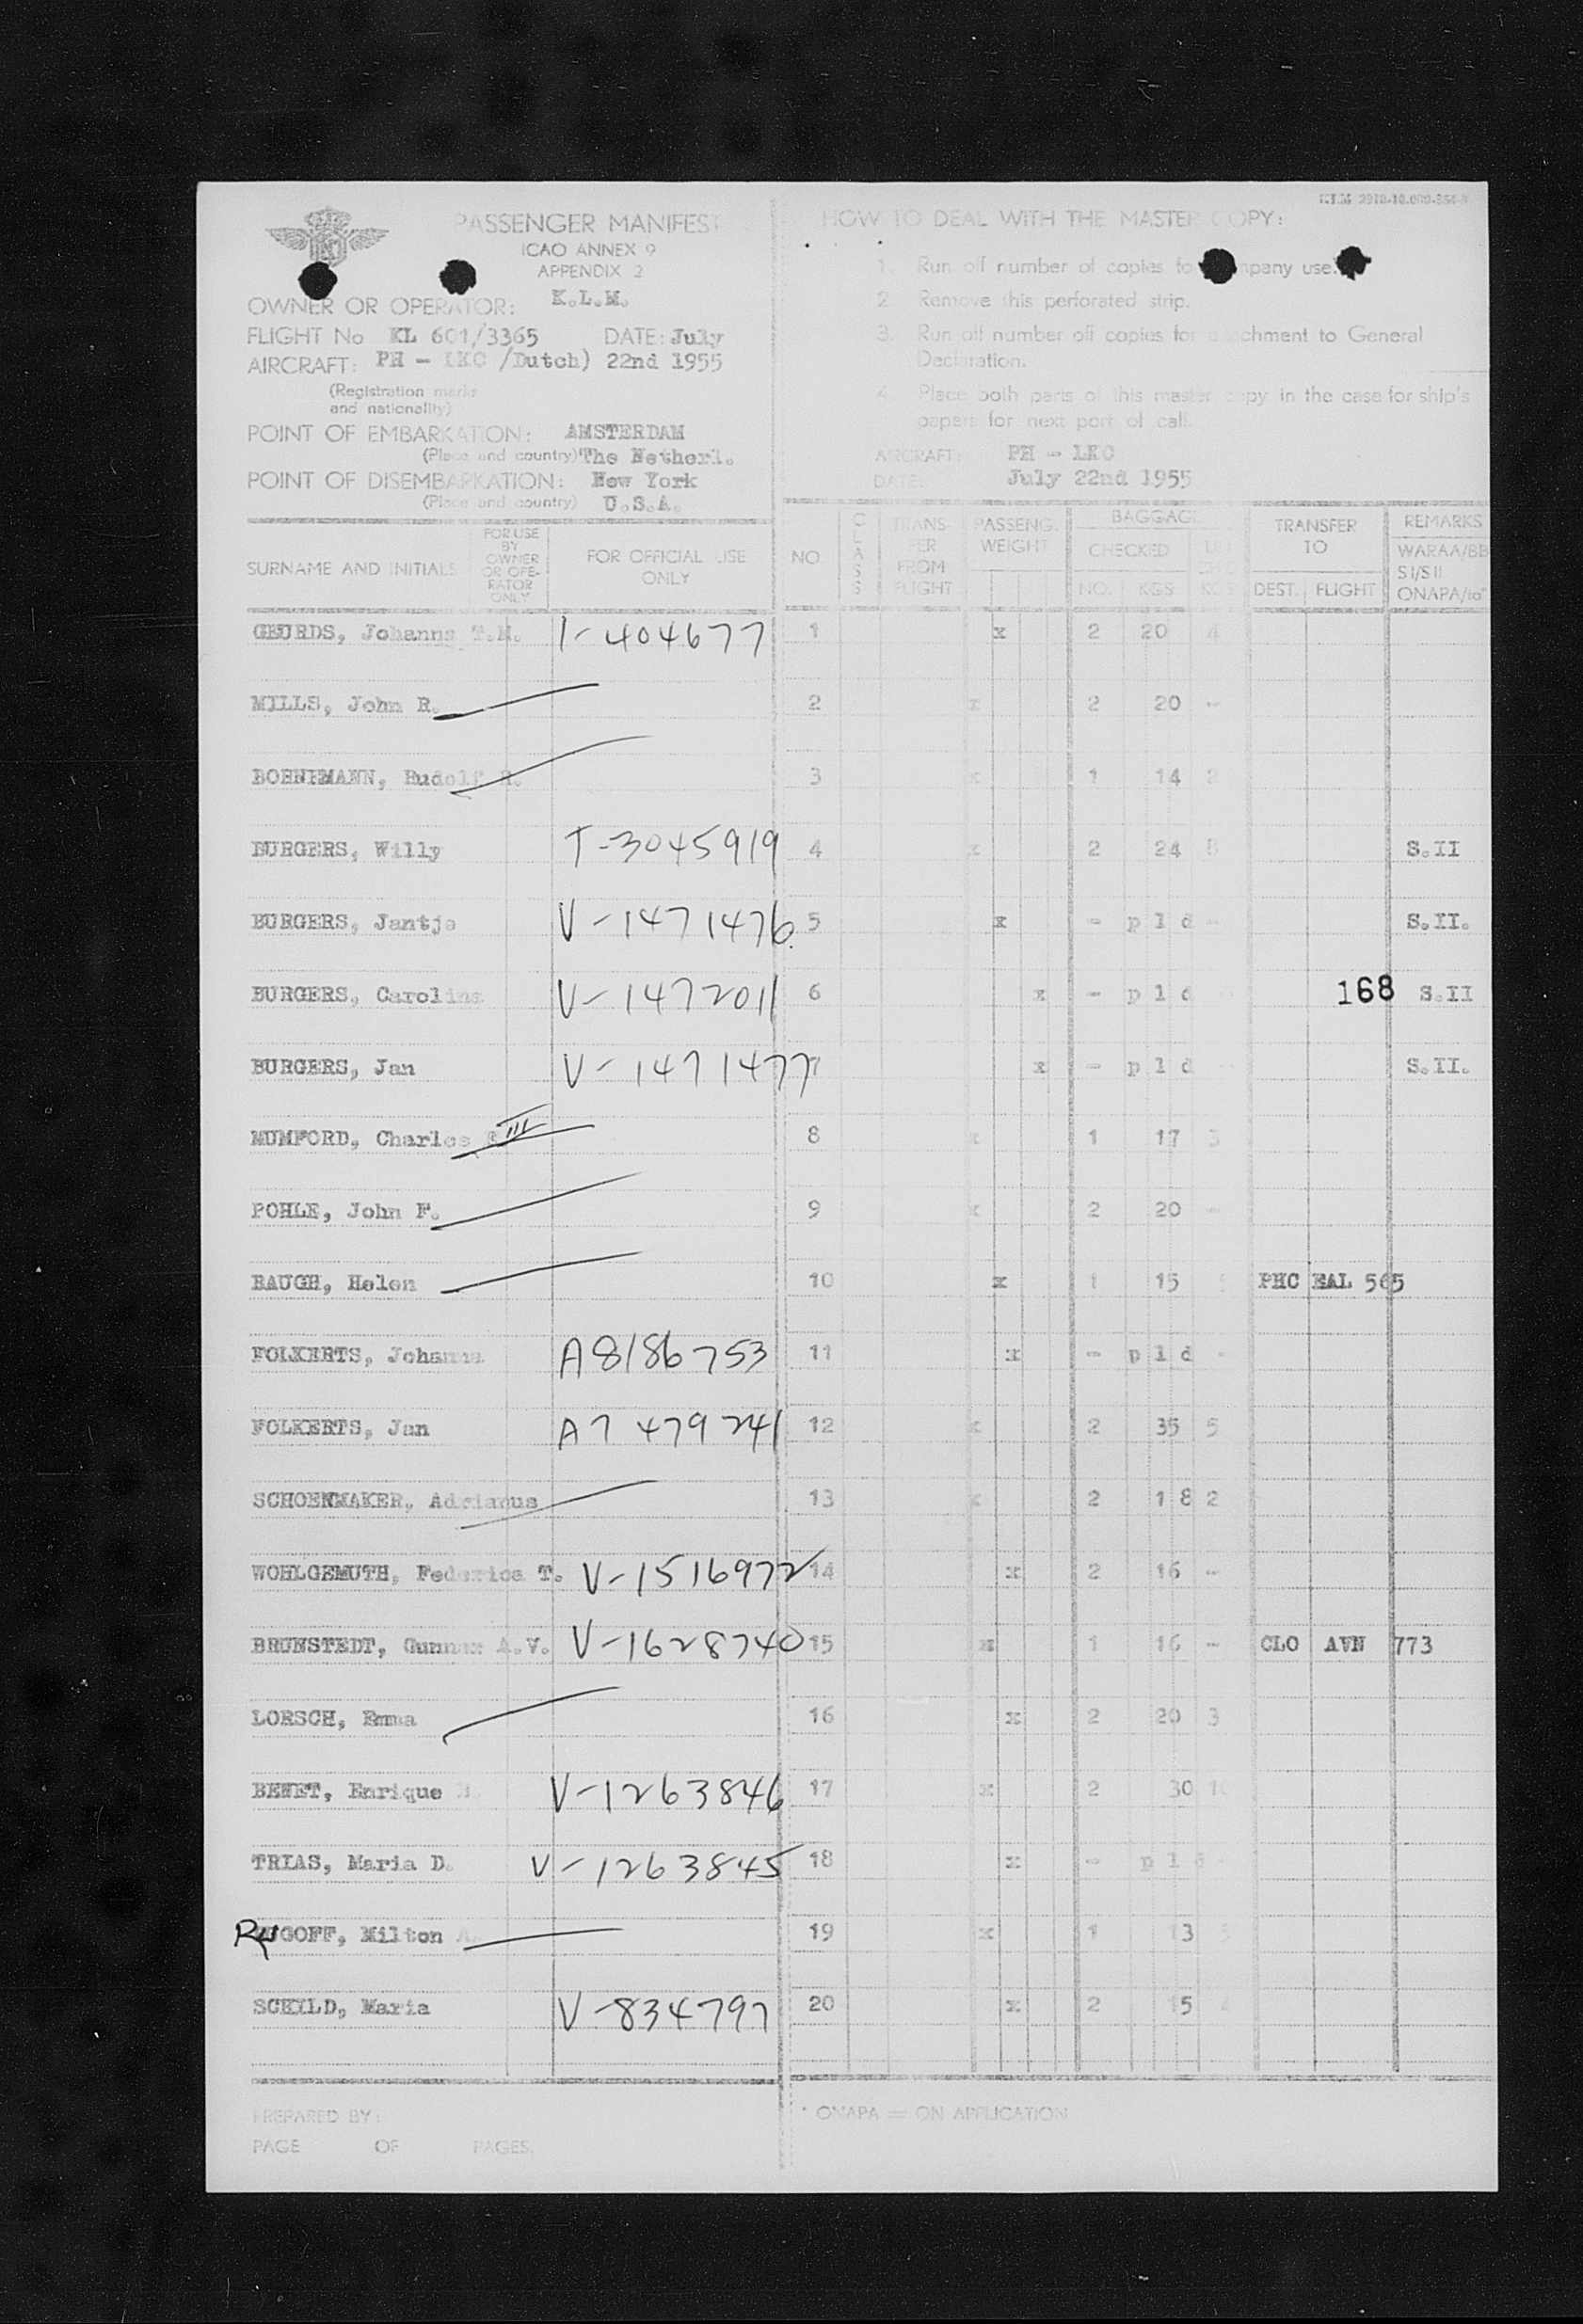 PASSENGER MANIFEST
ICAO ANNEX 9
APPENDIX 2
OWNER OR OPERATOR: K.L.M.
FLIGHT No KL 601/3365 DATE: July
AIRCRAFT: PH - LKC /Dutch) 22nd 1955
(Registration marks
and nationality)
POINT OF EMBARKATION: AMSTERDAM
(Place and country) The Netherl.
POINT OF DISEMBARKATION: New York
(Place and country) U.S.A.
HOW TO DEAL WITH THE MASTER COPY:
1. Run off number of copies for company use.
2. Remove this perforated strip.
3. Run off number off copies for attachment to General
Declaration.
4. Place both parts of this master copy in the case for ship's
papers for next port of call.
AIRCRAFT: PH - LKC
DATE: July 22nd 1955
SURNAME AND INITIALS
FOR USE
BY
OWNER
OR OPE-
RATOR
ONLY
FOR OFFICIAL USE
ONLY
NO
CLASS
TRANS-
FER
FROM
FLIGHT
PASSENG.
WEIGHT
BAGGAGE
CHECKED
NO. KGS
TRANSFER
TO
DEST. FLIGHT
REMARKS
WARAA/BB
S I/S II
ONAPA/to*
GEURDS, Johanns T.M. 1-404677 1 x 2 20 4
MILLS, John R. 2 x 2 20 -
BOENNEMANN, Rudolf R. 3 x 1 14 2
BURGERS, Willy T-3045919 4 x 2 24 5 S.II
BURGERS, Jantje V-1471476 5 x - p l d - S.II.
BURGERS, Carolina V-1472011 6 x - p l d 168 S.II
BURGERS, Jan V-1471477 7 x - p l d - S.II.
MUMFORD, Charles III 8 x 1 17 3
POHLE, John F. 9 x 2 20 -
BAUGH, Helen 10 x 1 15 PHC EAL 565
FOLKERTS, Johanna A8186753 11 x - p l d -
FOLKERTS, Jan A7 479241 12 x 2 35 5
SCHOENMAKER, Adrianus 13 x 2 18 2
WOHLGEMUTH, Federica T. V-1516972 14 x 2 16 -
BRUNSTEDT, Gunnar A.V. V-1628740 15 x 1 16 - CLO AVN 773
LORSCH, Emma 16 x 2 20 3
BENET, Enrique V-1263846 17 x 2 30 10
TRIAS, Maria D. V-1263845 18 x - p l d -
RUGOFF, Milton A. 19 x 1 13
SCHILD, Maria V-834797 20 x 2 15
PREPARED BY:
PAGE OF PAGES.
* ONAPA = ON APPLICATION